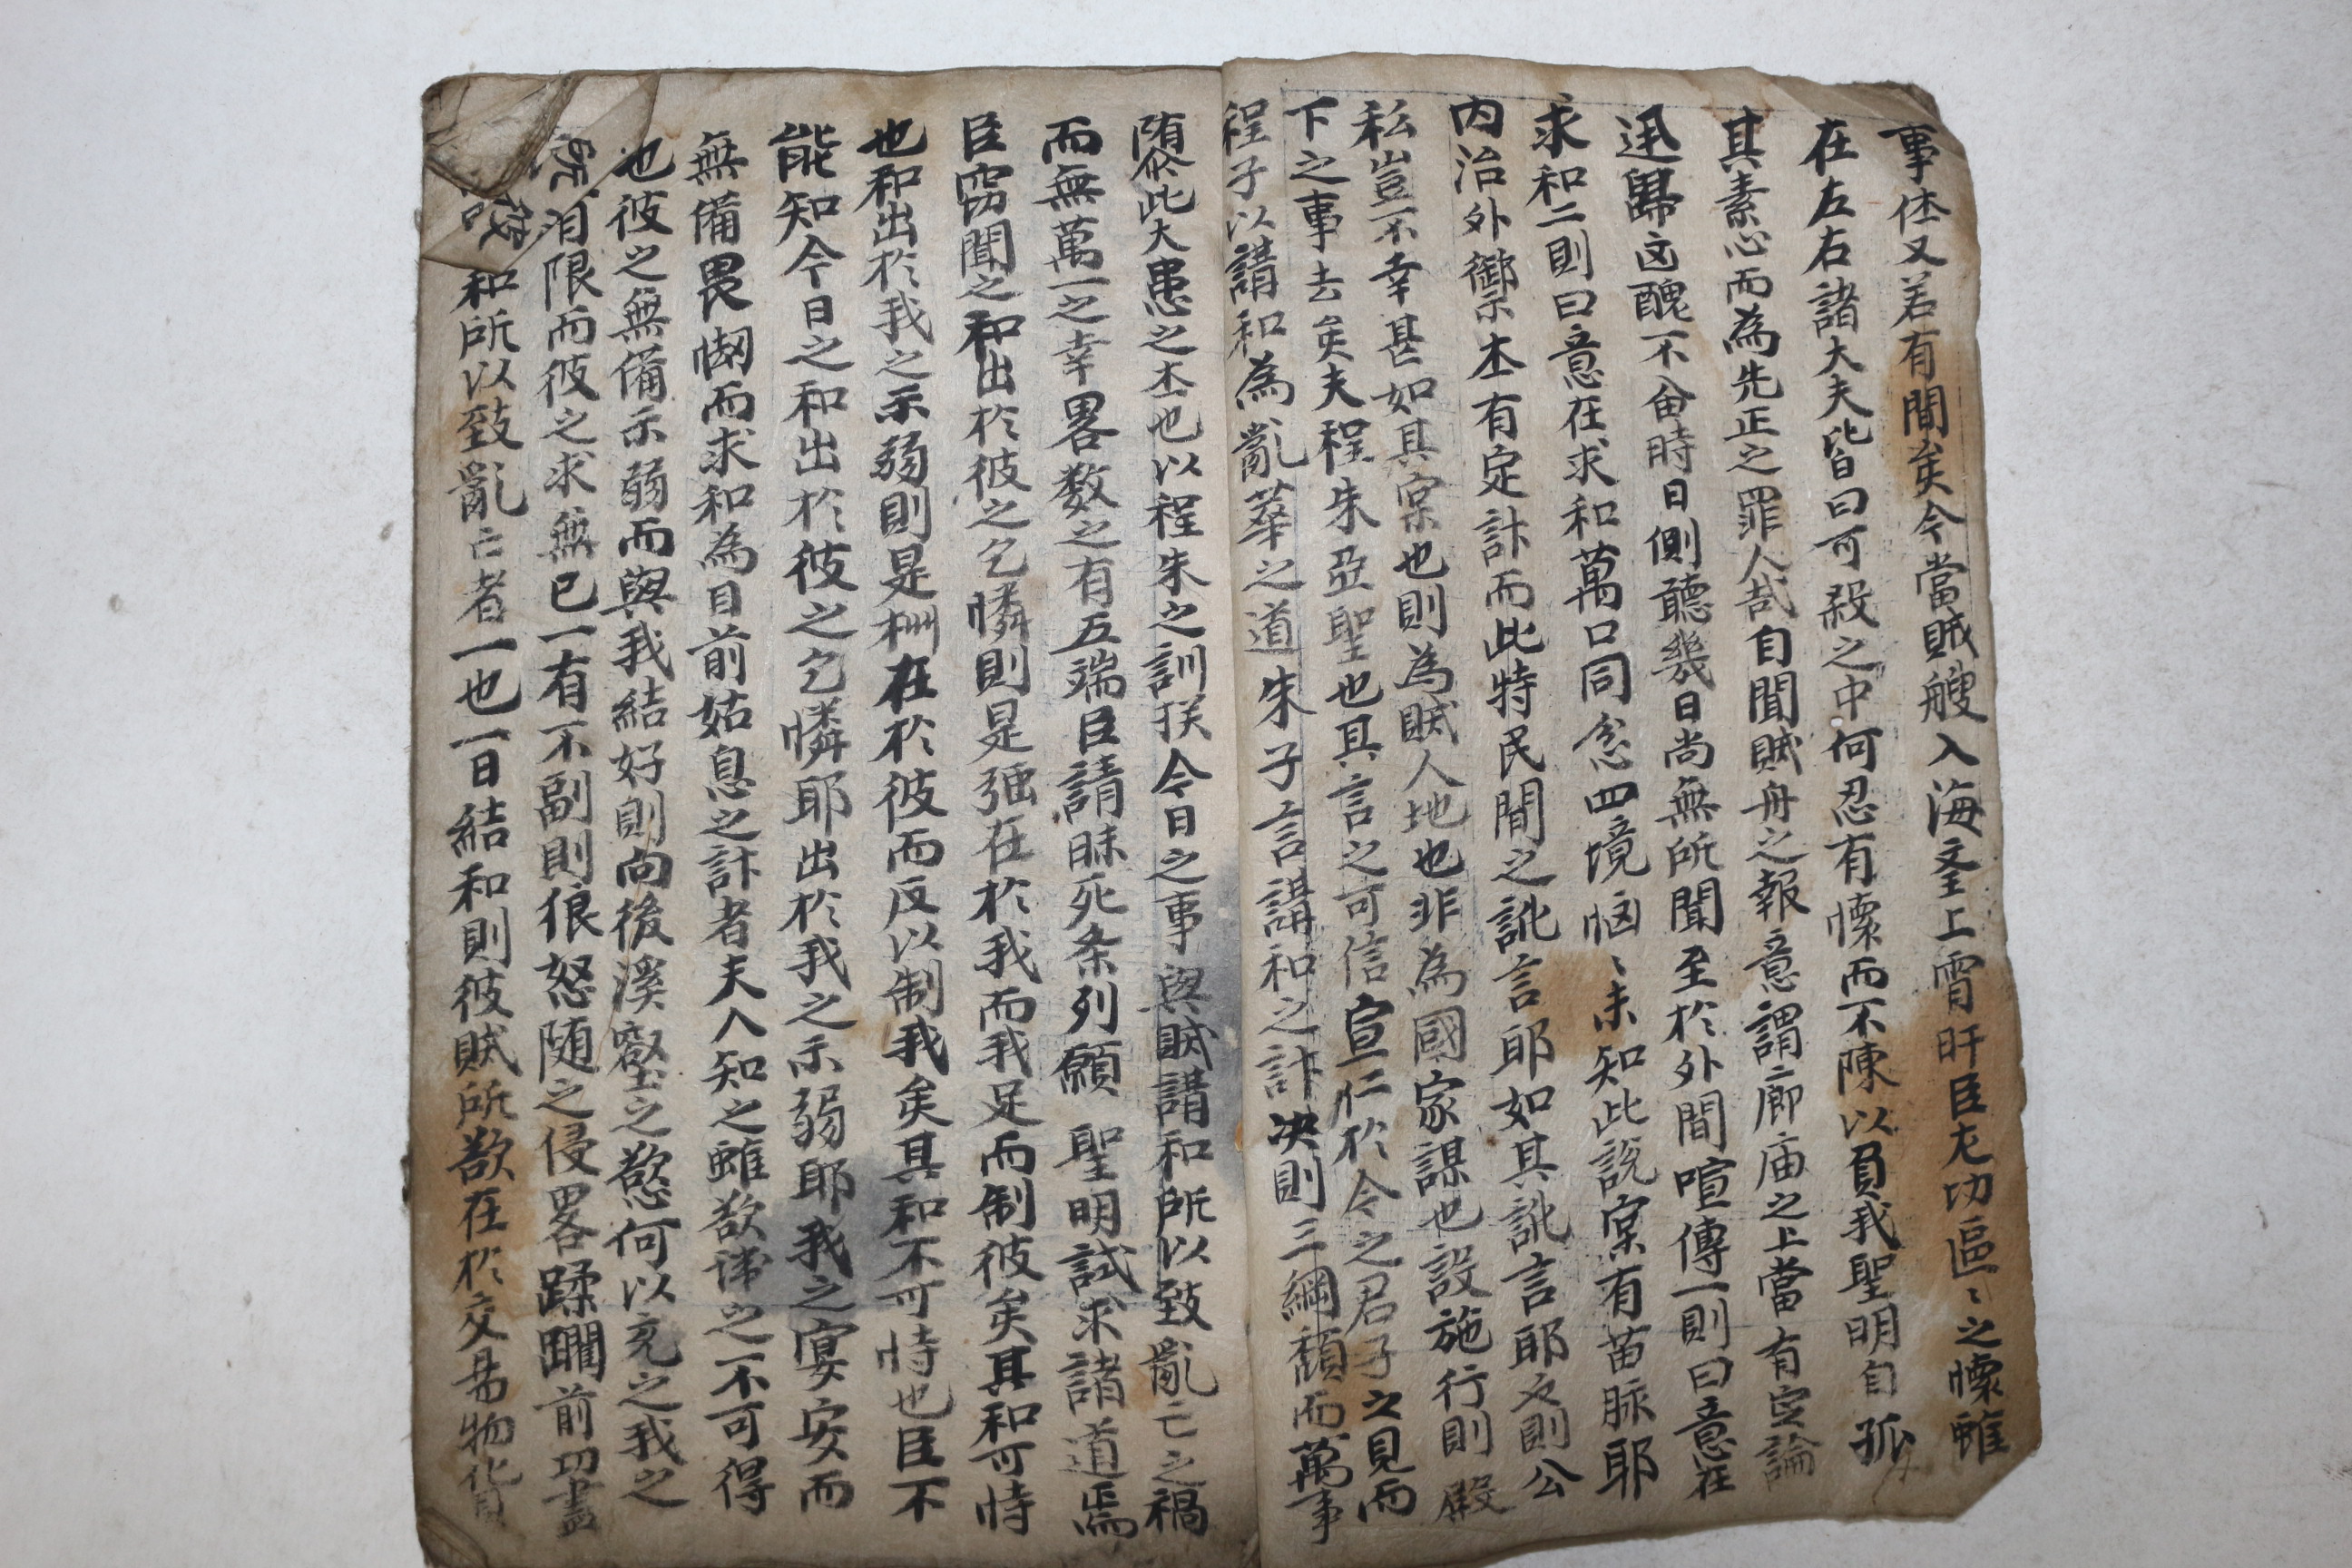 事体又若有間矣今當賊艘入海聖上宵旰臣尤切區〻之懷雖
在左右諸大夫皆曰可殺之中何忍有懷而不陳以負我聖明自孤
其素心而為先正之罪人哉自聞賊舟之報意謂廊庙之上當有定論
迅歸凶醜不旹時日側聽幾日尚無所聞至於外間喧傳一則曰意在
求和二則曰意在求和萬口同忿四境恟〻未知此說宲有苗脉耶
内治外禦本有定計而此特民間之訛言耶如其訛言耶又則公
私豈不幸甚如其宲也則為賊人地也非為國家謀也設施行則殿
下之事去矣夫程朱亞聖也其言之可信宣仁於今之君子之見而
程子以講和為亂華之道朱子言講和之計决則三綱頹而萬事
隳此大患之本也以程朱之訓揆今日之事與賊講和所以致亂亡之禍
而無萬一之幸畧数之有五端臣請昧死条列願 聖明試求諸道焉
臣竊聞之和出於彼之乞憐則是强在於我而我足而制彼矣其和可恃
也和出於我之示弱則是柄在於彼而反以制我矣其和不可恃也臣不
能知今日之和出於彼之乞憐耶出於我之示弱耶我之宴安而
無備畏㥘而求和為目前姑息之計者夫人知之雖欲諱之不可得
也彼之無備示弱而與我結好則向後溪壑之慾何以充之我之
有限而彼之求無已一有不副則狼怒随之侵畧蹂躙前功盡
和所以致亂亡者一也一日結和則彼賊所欲在於交易物貨